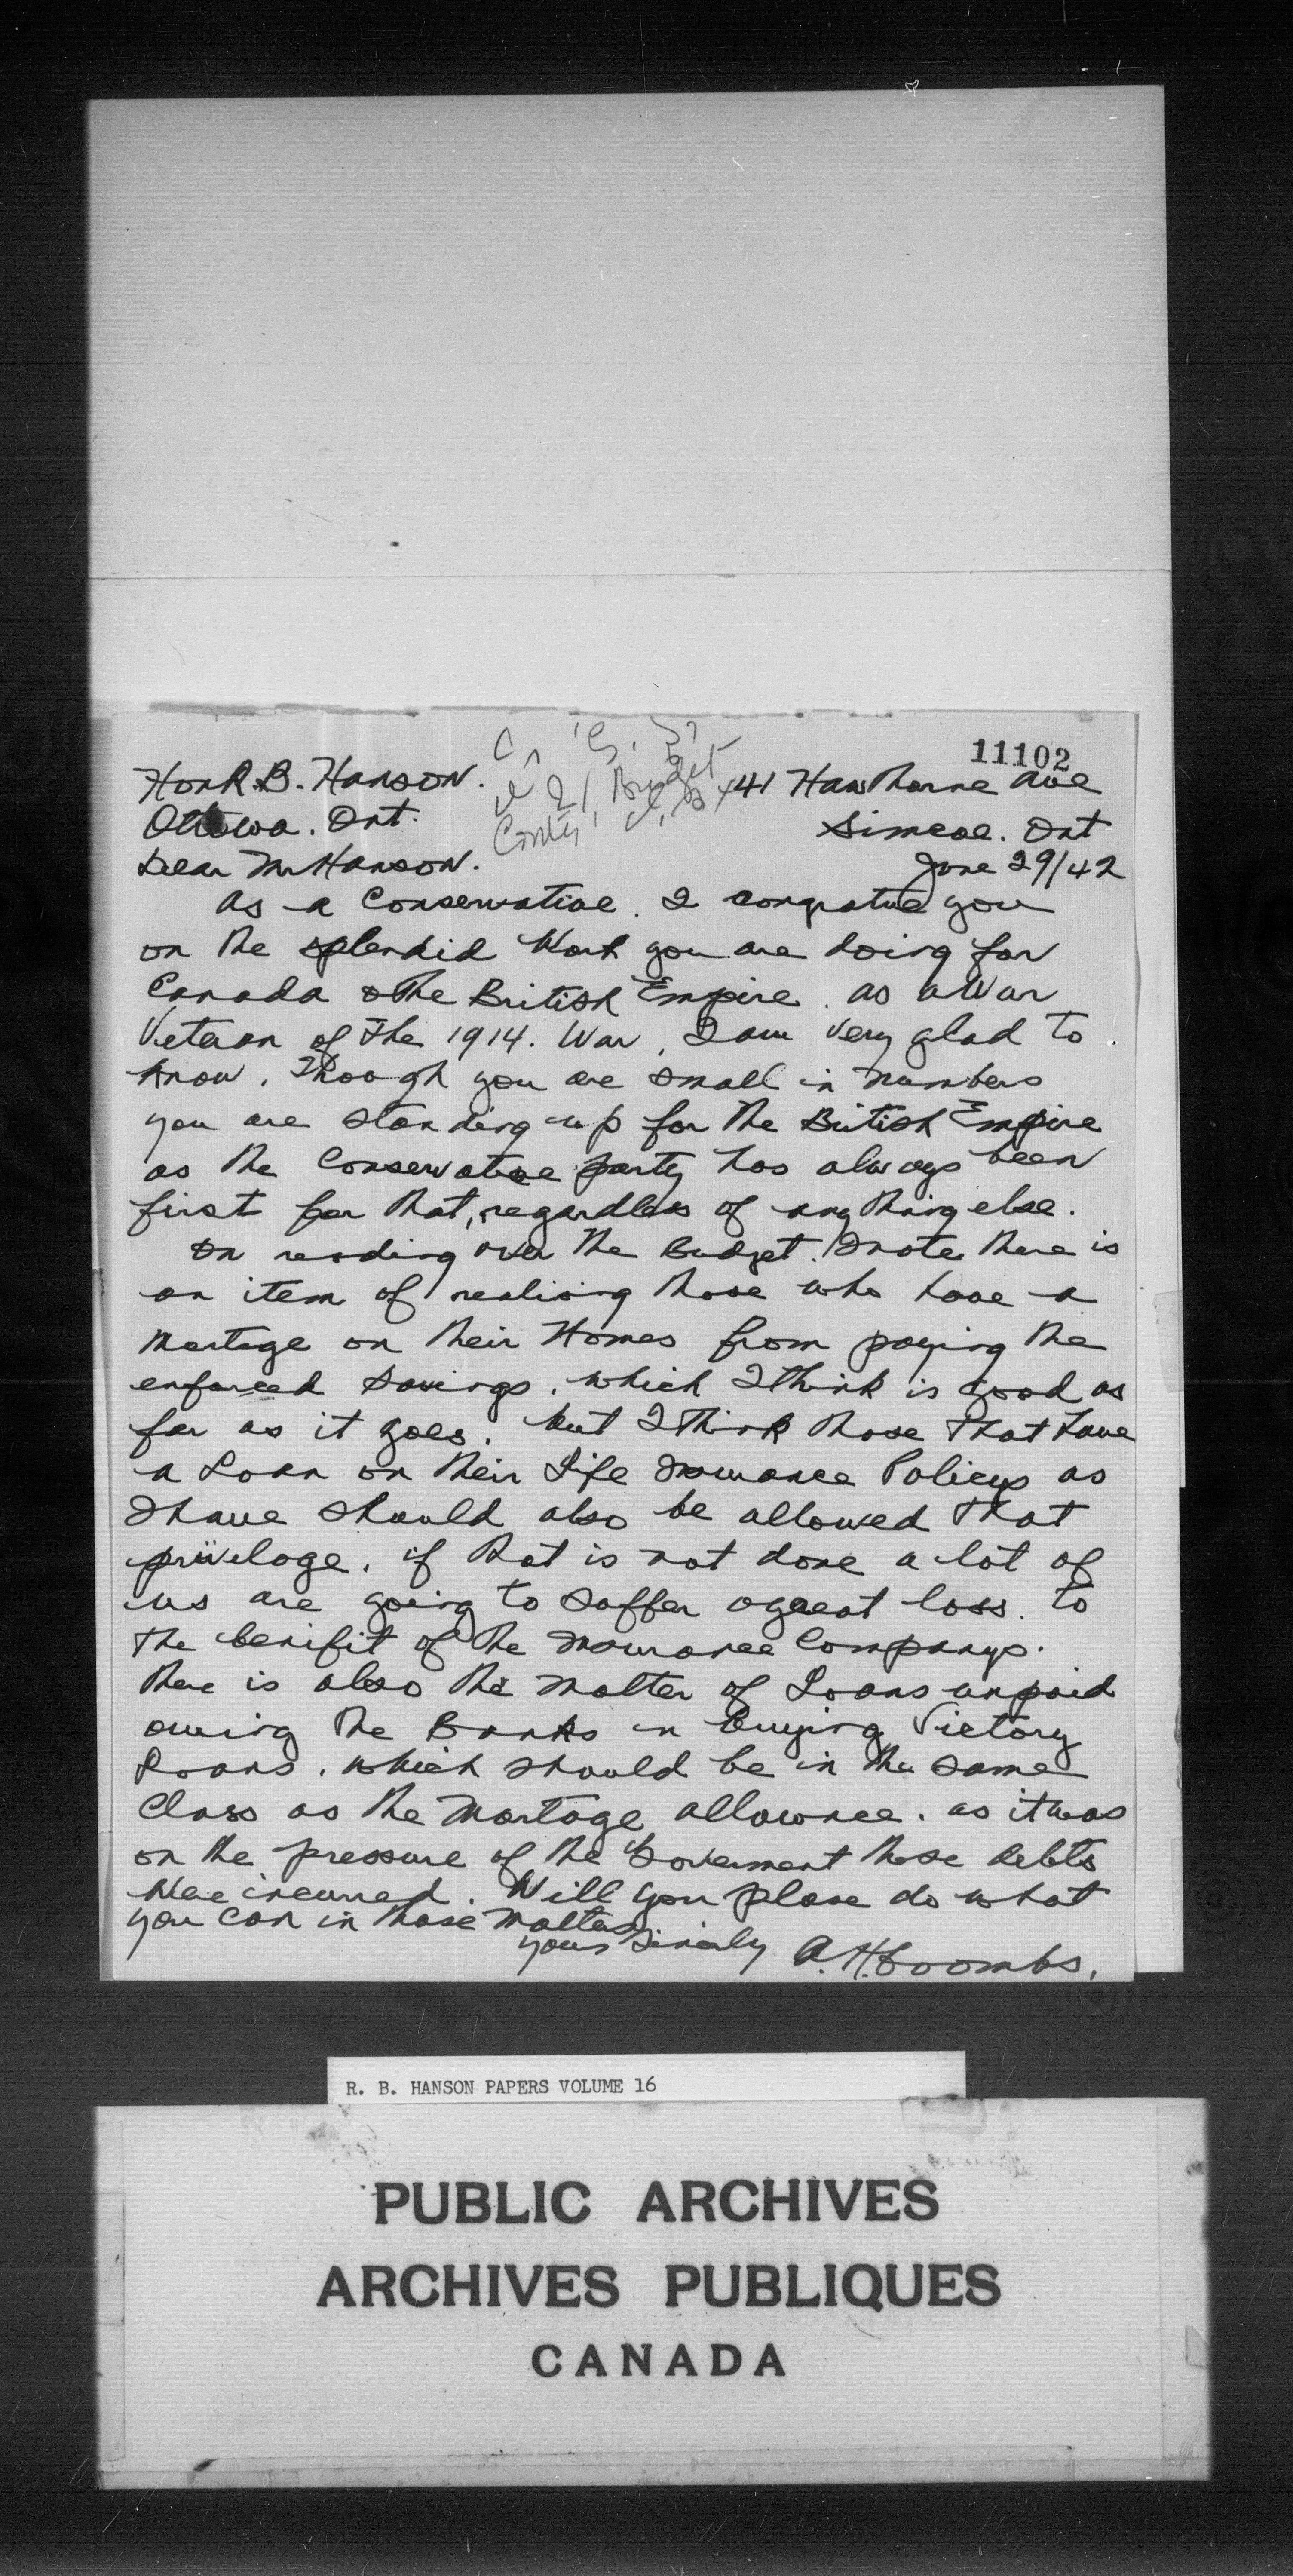 11102
Hon R. B. Hanson.
Ottawa. Ont.
41 Hawthorne Ave
Simcoe. Ont
June 29/42
Dear Mr Hanson.
As a Conservative. I congratue you
on the splendid Work you are doing for
Canada & The British Empire. as a War
Veteran of The 1914. War, I am very glad to
know. Though you are small in numbers
you are standing up for the British Empire
as the Conservative party has always been
first for that, regardless of any thing else.
In reading over the Budget. I note there is
an item of realising those who have a
Mortage on their Homes from paying the
enforced Savings. which I think is good as
far as it goes. but I think those that have
a Loan on their Life Insurance Policys as
I have should also be allowed that
privelage. if that is not done a lot of
us are going to suffer a great loss. to
the benifit of the Insurance Companys.
there is also the matter of Loans unpaid
owing the Banks in buying Victory
Loans. which should be in the same
Class as the Mortage allownce. as it was
on the pressure of the Goverment those debts
were incurred. Will you please do what
you can in those matters
yours Sincerly A. H. Coombs.
Budget
R. B. HANSON PAPERS VOLUME 16
PUBLIC ARCHIVES
ARCHIVES PUBLIQUES
CANADA